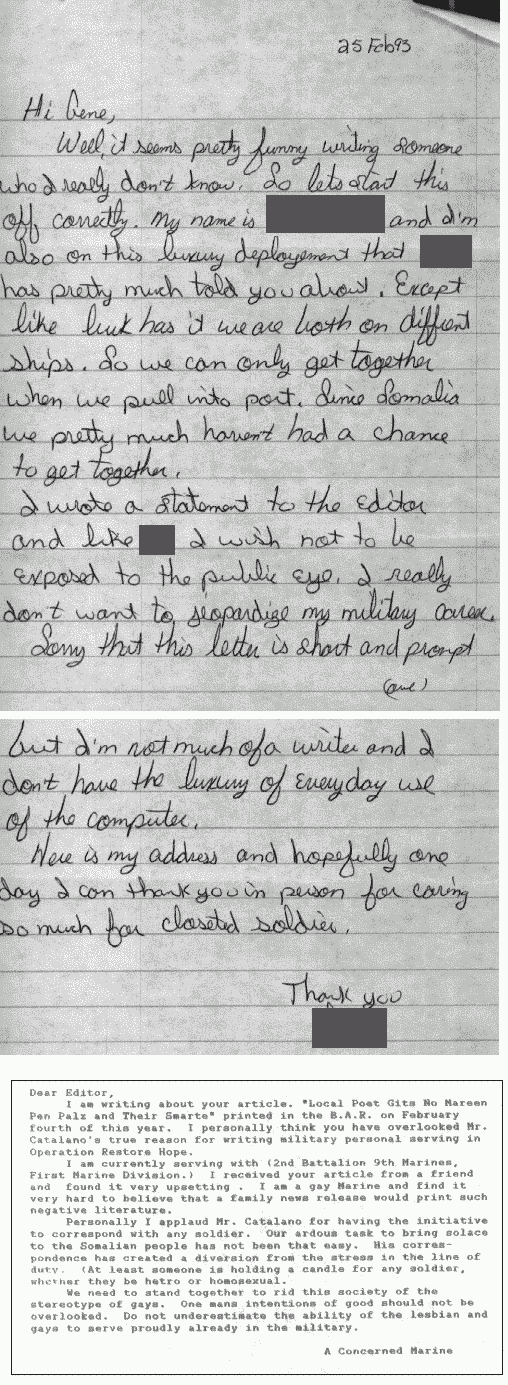 25 Feb93
Hi Gene,
Well, it seems pretty funny writing someone
who I really don't know. So lets start this
off correctly. My name is and I'm
also on this luxury deployement that
has pretty much told you about. Except
like luck has it we are both on diffrent
ships. So we can only get together
when we pull into port. Since Somalia
we pretty much haven't had a chance
to get together.
I wrote a statement to the editor
and like I wish not to be
exposed to the public eye. I really
don't want to jeopardize my military career.
Sorry that this letter is short and prompt
(over)
but I'm not much of a writer and I
don't have the luxury of everyday use
of the computer.
Here is my address and hopefully one
day I can thank you in person for caring
so much for closeted soldier.
Thank you
Dear Editor,
I am writing about your article. "Local Poet Gits No Mareen
Pen Palz and Their Smarte" printed in the B.A.R. on February
fourth of this year. I personally think you have overlooked Mr.
Catalano's true reason for writing military personal serving in
Operation Restore Hope.
I am currently serving with (2nd Battalion 9th Marines,
First Marine Division.) I received your article from a friend
and found it very upsetting . I am a gay Marine and find it
very hard to believe that a family news release would print such
negative literature.
Personally I applaud Mr. Catalano for having the initiative
to correspond with any soldier. Our ardous task to bring solace
to the Somalian people has not been that easy. His corres-
pondence has created a diversion from the stress in the line of
duty. (At least someone is holding a candle for any soldier,
whether they be hetro or homosexual.
We need to stand together to rid this society of the
stereotype of gays. One mans intentions of good should not be
overlooked. Do not underestimate the ability of the lesbian and
gays to serve proudly already in the military.
A Concerned Marine